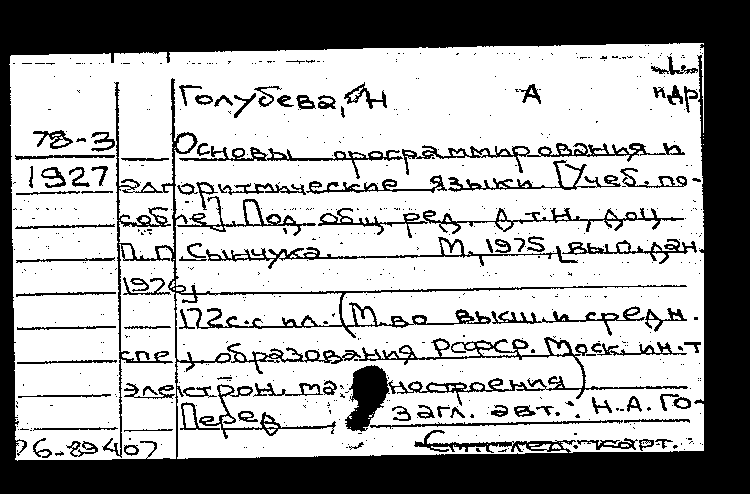 Голубева, Н А и др
78-3 Основы программирования и
1927 алгоритмические языки. [Учеб. по-
собие]. Под общ. ред. д.т.н., доц.
П. П. Сынчука. М., 1975, [вып. дан.
1976].
172 с. с ил. (М-во высш. и средн.
спец. образования РСФСР. Моск. ин-т
электрон. ма ностроения).
Перед загл. авт.: Н.А. Го-
76-89407 См. след. карт.